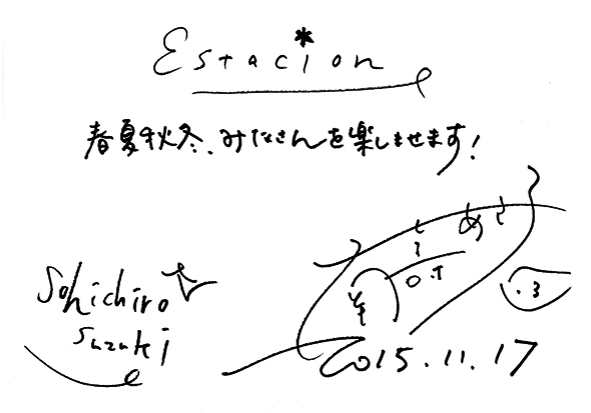 Estacion
春夏秋冬、みなさんを楽しませます!
Sohichiro
Suzuki
2015.11.17